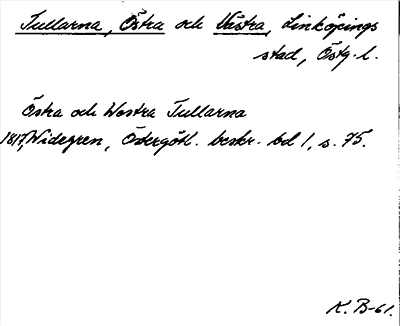 Tullarna, Östra och Västra, Linköpings
stad, Östg. l.
Östra och Westra Tullarna
1817, Widegren, Östergötl. beskr. bd 1, s. 75.
K. B-61.